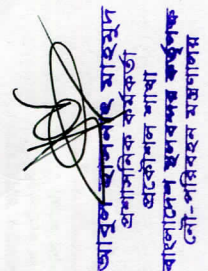 আবুল কালাম মাহমুদ
প্রশাসনিক কর্মকর্তা
প্রকৌশল শাখা
বাংলাদেশ স্থলবন্দর কর্তৃপক্ষ
নৌ-পরিবহন মন্ত্রণালয়